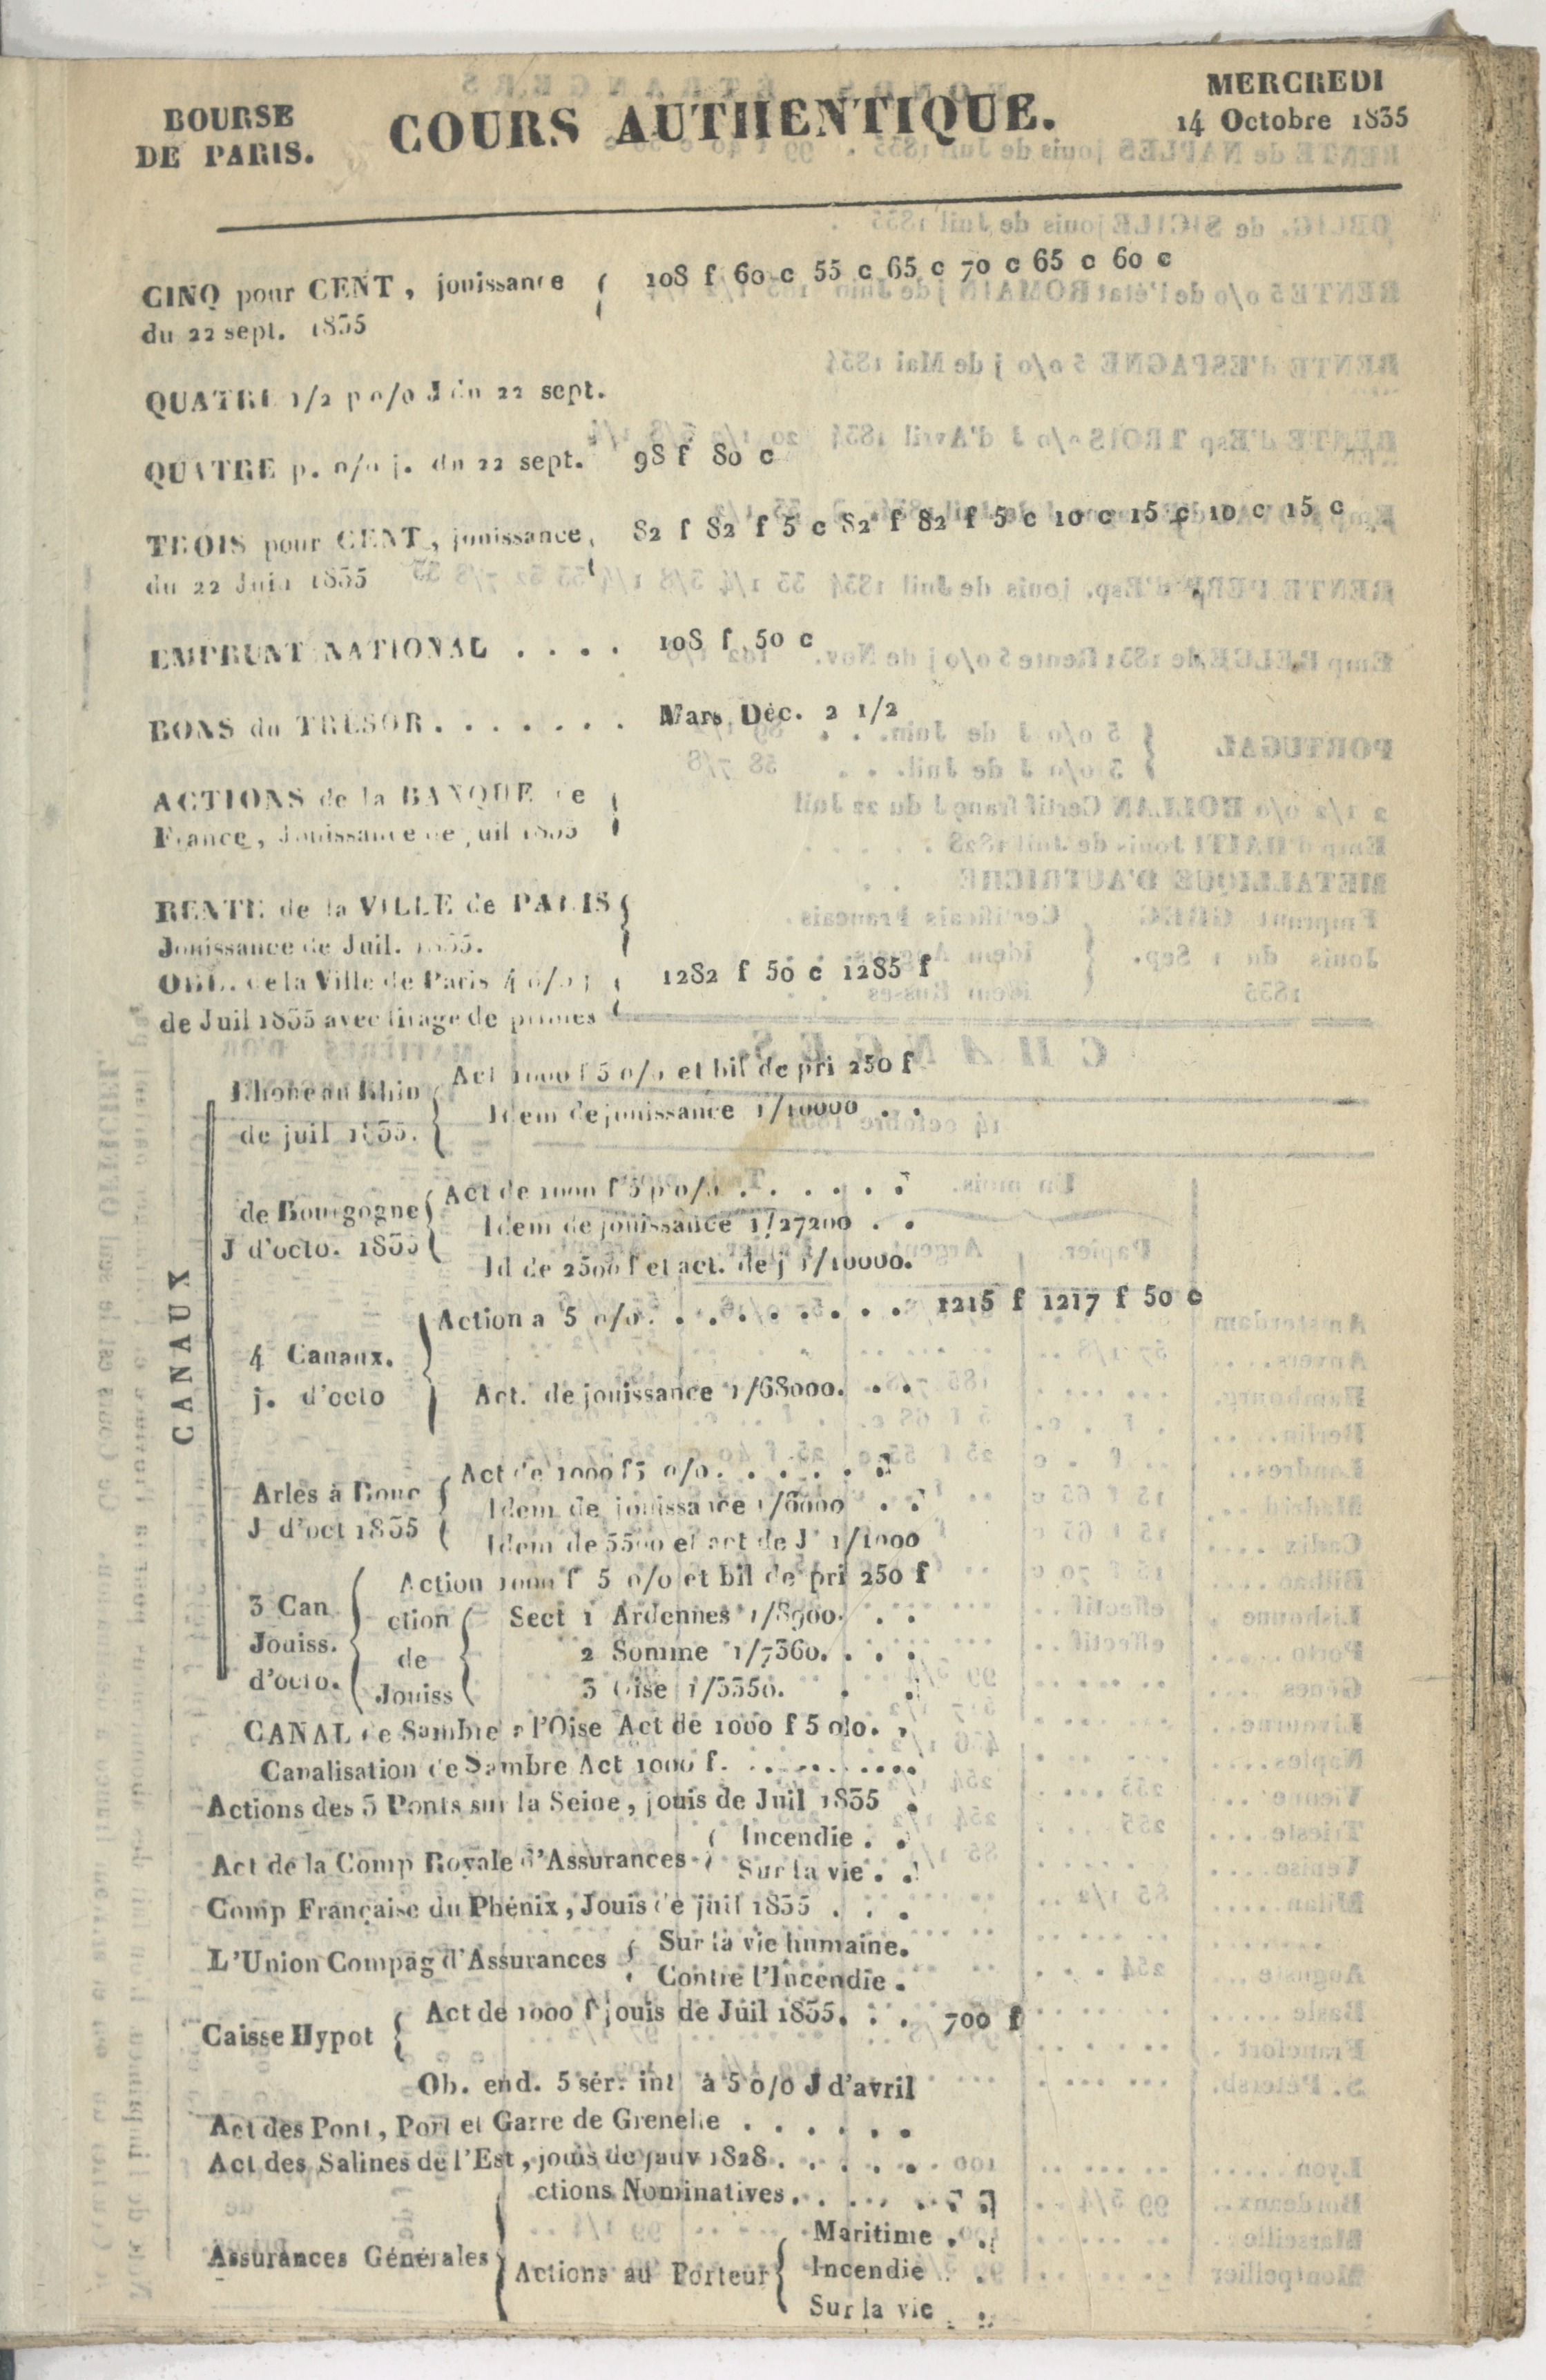 BOURSE
DE PARIS.
COURS AUTHENTIQUE.
MERCREDI
14 Octobre 1835
CINQ pour CENT, jouissance 108 f 60 c 55 c 65 c 70 c 65 c 60 c
du 22 sept. 1835
QUATRE 1/2 p o/o J du 22 sept.
QUATRE p. o/o j. du 22 sept. 98 f 80 c
TROIS pour CENT, jouissance, 82 f 82 f 5 c 82 f 82 f 5 c 10 c 15 c 10 c 15 c
du 22 Juin 1835
EMPRUNT NATIONAL . . . . 108 f 50 c
BONS du TRESOR . . . . . . . Mars Déc. 2 1/2
ACTIONS de la BANQUE de
France, Jouissance de juil 1835
RENTE de la VILLE de PARIS
Jouissance de Juil. 1835.
OBL. de la Ville de Paris 4 o/o j 1282 f 50 c 1285 f
de Juil 1835 avec tirage de primes
CANAUX
Rhone au Rhin
de juil 1835.
Act 1000 f 5 o/o et bil de pri 250 f
Idem de jouissance 1/10000 . .
de Bourgogne
J d'octo. 1835
Act de 1000 f 5 p o/o . . . . . .
Idem de jouissance 1/27200 . .
Id de 2500 f et act. de j 1/10000.
4 Canaux.
j. d'octo
Action a 5 o/o . . . . . . . . . 1215 f 1217 f 50 c
Act. de jouissance 1/68000. . .
Arles à Bouc
J d'oct 1835
Act de 1000 f 5 o/o . . . . . .
Idem de jouissance 1/6000 . .
Idem de 5500 et act de J 1/1000
3 Can
Jouiss.
d'octo.
Action 1000 f 5 o/o et bil de pri 250 f
ction
de
Jouiss
Sect 1 Ardennes 1/8900. . .
2 Somme 1/7360. . . .
3 Oise 1/3350. . .
CANAL de Sambre a l'Oise Act de 1000 f 5 o|o. ,
Canalisation de Sambre Act 1000 f. . . . . . . . .
Actions des 3 Ponts sur la Seine, jouis de Juil 1835 .
Act de la Comp Royale d'Assurances
Incendie . .
Sur la vie . .
Comp Française du Phénix, Jouis de juil 1835 . . .
L'Union Compag d'Assurances
Sur la vie humaine.
Contre l'Incendie .
Caisse Hypot
Act de 1000 f jouis de Juil 1835. . . 700 f
Ob. end. 5 sér. int à 5 o/o J d'avril
Act des Pont, Port et Garre de Grenelle . . . . . .
Act des Salines de l'Est, jouis de janv 1828 . . . . .
Assurances Générales
ctions Nominatives . . . . . .
Actions au Porteur
Maritime . .
Incendie . .
Sur la vie .